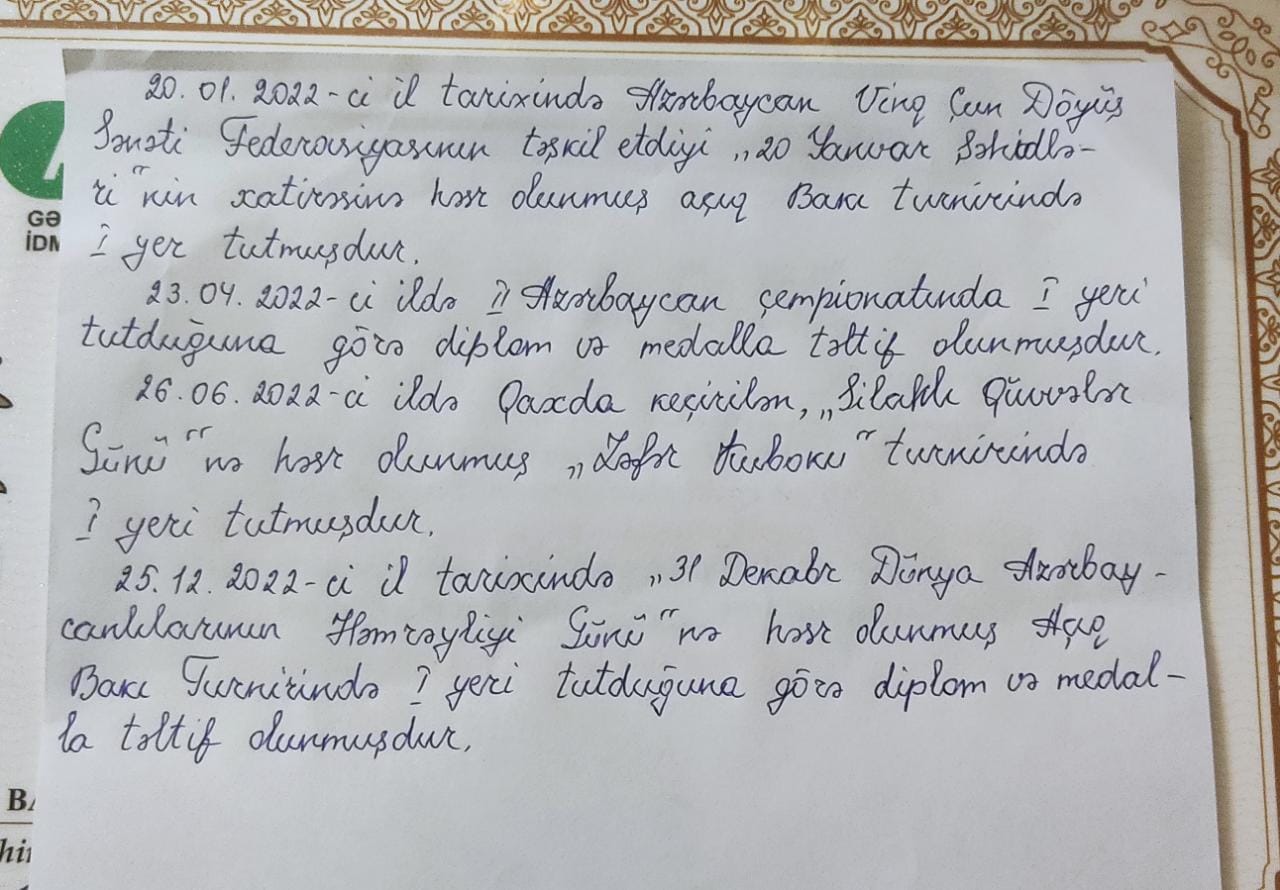 20.01.2022-ci il tarixində Azərbaycan Vinq Çun Döyüş
Sənəti Federasiyasının təşkil etdiyi „20 Yanvar Şəhidlə-
ri“nin xatirəsinə həsr olunmuş açıq Bakı turnirində
I yer tutmuşdur.
23.04.2022-ci ildə II Azərbaycan çempionatında I yeri
tutduğuna görə diplom və medalla təltif olunmuşdur.
26.06.2022-ci ildə Qaxda keçirilən, „Silahlı Qüvvələr
Günü“nə həsr olunmuş „Zəfər Kuboku“ turnirində
I yeri tutmuşdur.
25.12.2022-ci il tarixində „31 Dekabr Dünya Azərbay-
canlılarının Həmrəyliyi Günü“nə həsr olunmuş Açıq
Bakı Turnirində I yeri tutduğuna görə diplom və medal-
la təltif olunmuşdur.
GƏ
İDM
BA
hi